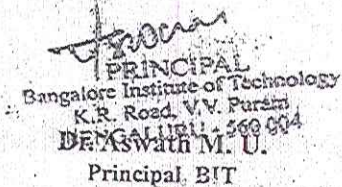 PRINCIPAL
Bangalore Institute of Technology
K.R. Road, V.V. Puram
BENGALURU - 560 004
Dr. Aswath M. U.
Principal, BIT